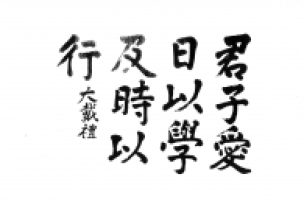 君子愛
日以學
及時以
行
大戴禮